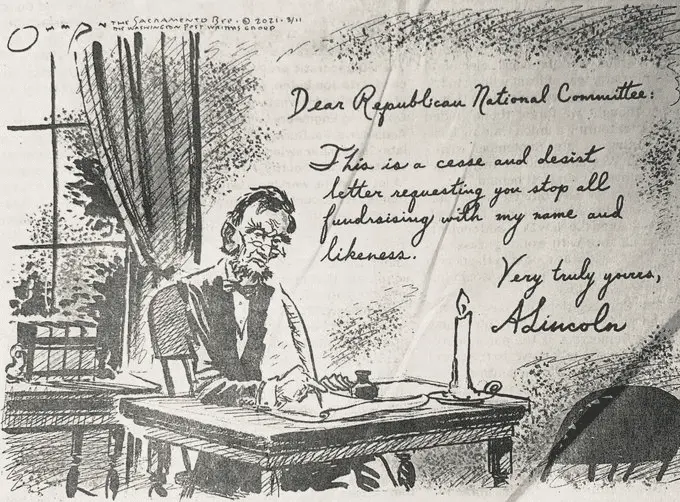 OHMAN THE SACRAMENTO BEE © 2021 · 3/11
THE WASHINGTON POST WRITERS GROUP
Dear Republican National Committee:
This is a cease and desist
letter requesting you stop all
fundraising with my name and
likeness.
Very truly yours,
ALincoln